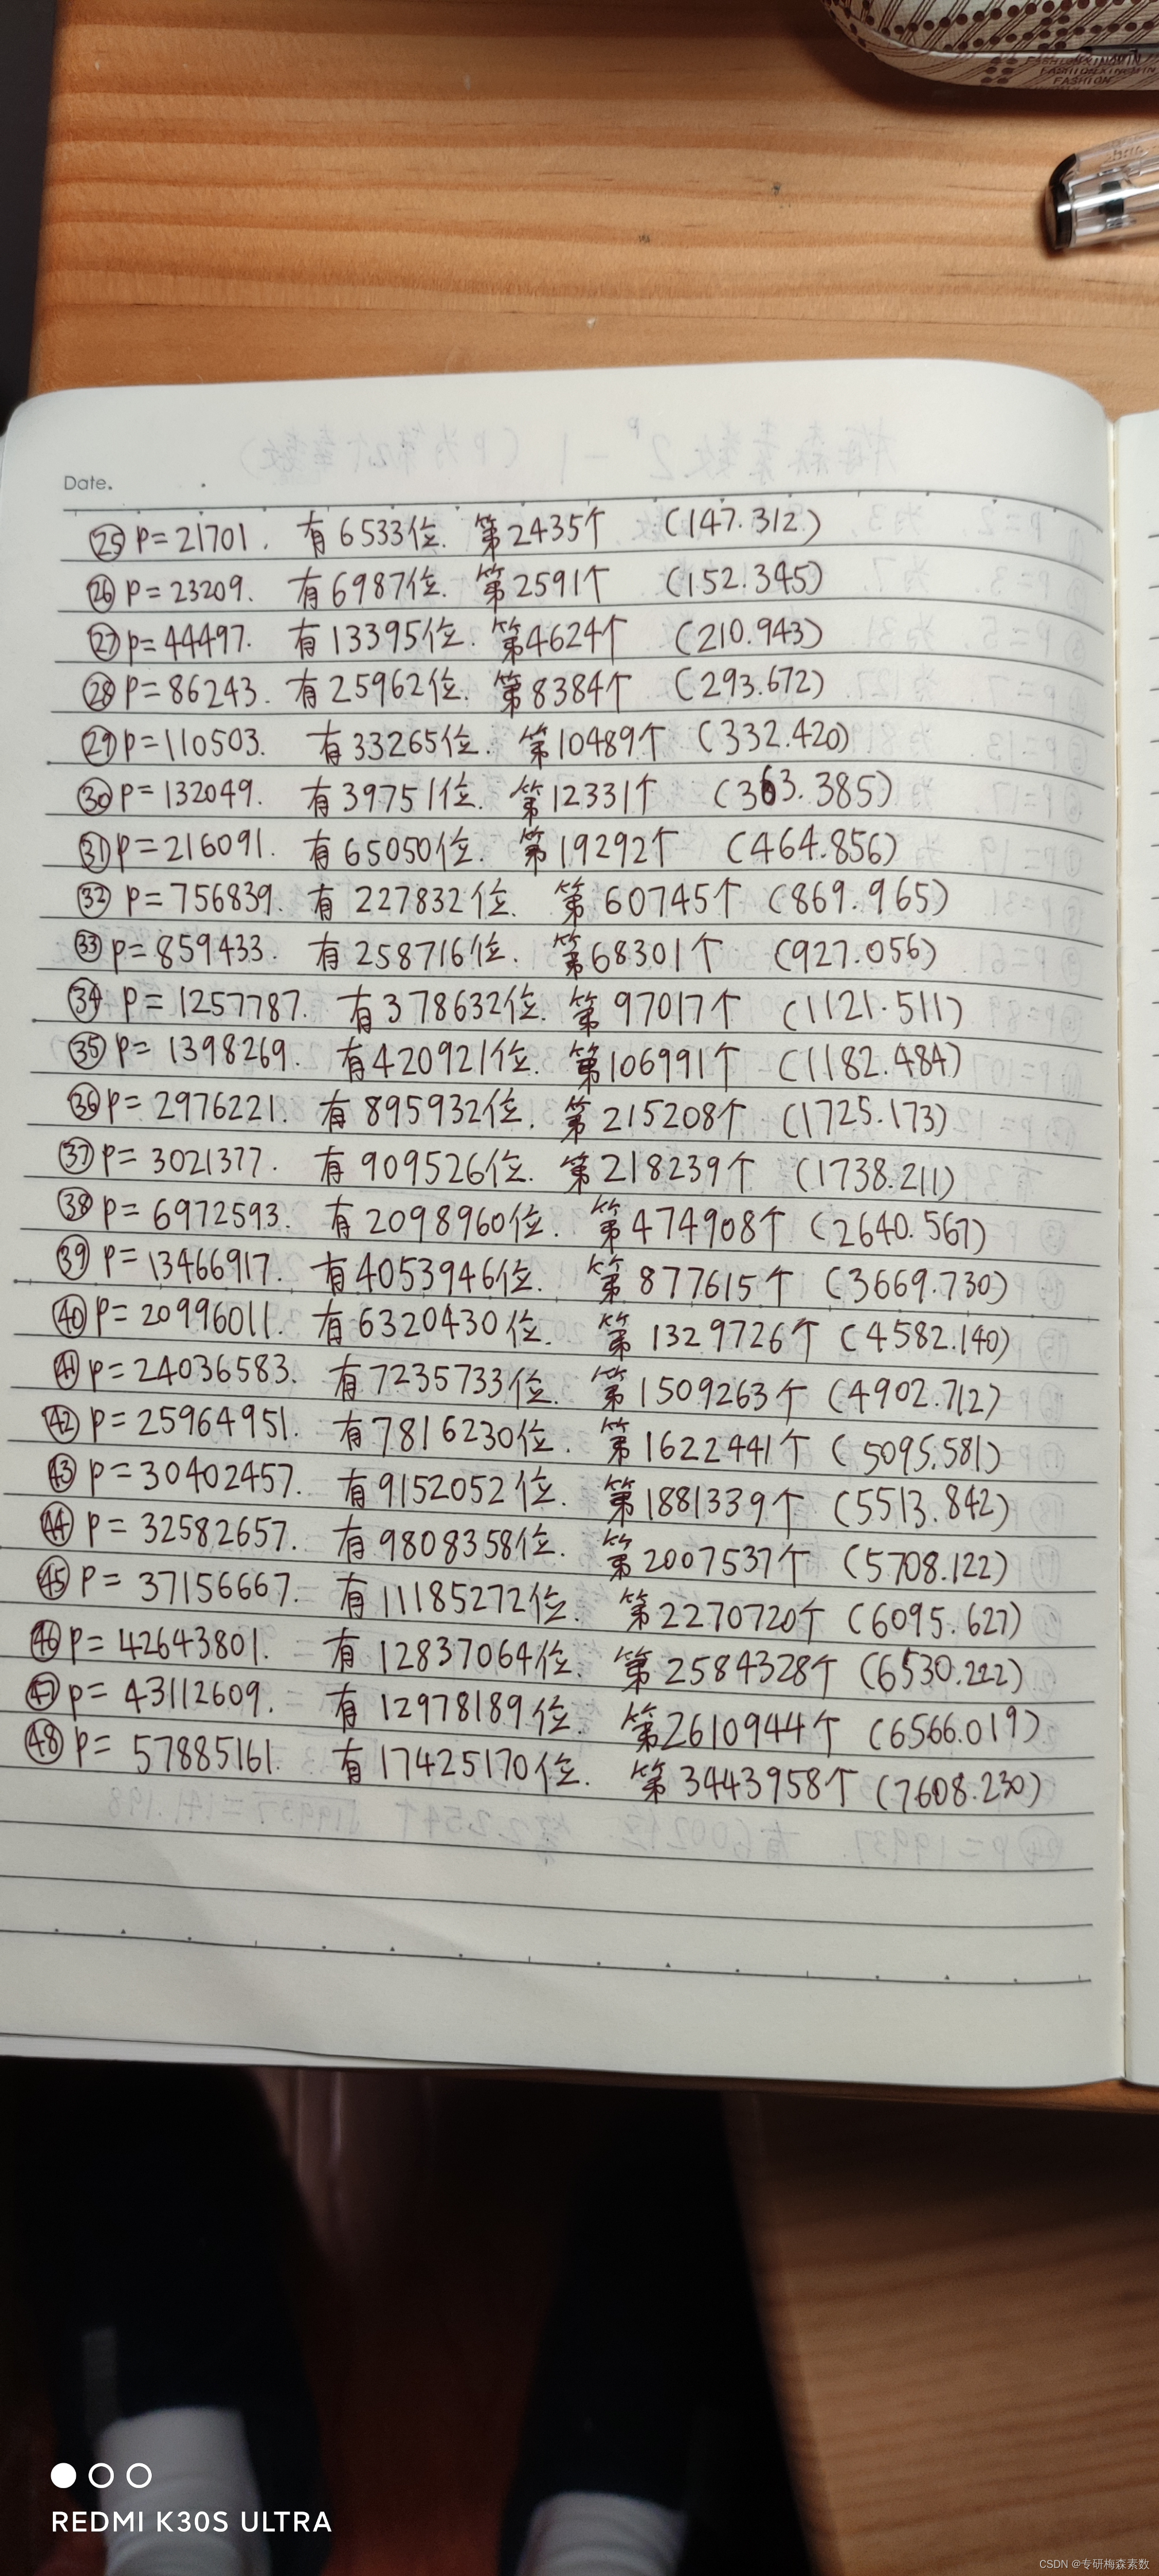 FASHIONXINGMIN
FASHIONXINGMIN
FASHION
Date.
㉕ P=21701. 有6533位. 第2435个 (147.312)
㉖ P=23209. 有6987位. 第2591个 (152.345)
㉗ P=44497. 有13395位. 第4624个 (210.943)
㉘ P=86243. 有25962位. 第8384个 (293.672)
㉙ P=110503. 有33265位. 第10489个 (332.420)
㉚ P=132049. 有39751位. 第12331个 (363.385)
㉛ P=216091. 有65050位. 第19292个 (464.856)
㉜ P=756839. 有227832位. 第60745个 (869.965)
㉝ P=859433. 有258716位. 第68301个 (927.056)
㉞ P=1257787. 有378632位. 第97017个 (1121.511)
㉟ P=1398269. 有420921位. 第106991个 (1182.484)
㊱ P=2976221. 有895932位. 第215208个 (1725.173)
㊲ P=3021377. 有909526位. 第218239个 (1738.211)
㊳ P=6972593. 有2098960位. 第474908个 (2640.567)
㊴ P=13466917. 有4053946位. 第877615个 (3669.730)
㊵ P=20996011. 有6320430位. 第1329726个 (4582.140)
㊶ P=24036583. 有7235733位. 第1509263个 (4902.712)
㊷ P=25964951. 有7816230位. 第1622441个 (5095.581)
㊸ P=30402457. 有9152052位. 第1881339个 (5513.842)
㊹ P=32582657. 有9808358位. 第2007537个 (5708.122)
㊺ P=37156667. 有11185272位. 第2270720个 (6095.627)
㊻ P=42643801. 有12837064位. 第2584328个 (6530.222)
㊼ P=43112609. 有12978189位. 第2610944个 (6566.019)
㊽ P=57885161. 有17425170位. 第3443958个 (7608.230)
REDMI K30S ULTRA
CSDN @专研梅森素数